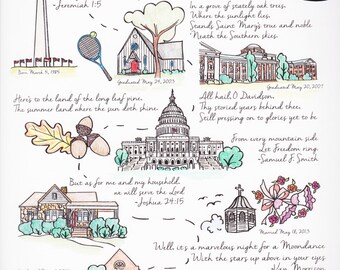 - Jeremiah 1:5
In a grove of stately oak trees,
Where the sunlight lies,
Stands Saint Mary's true and noble
'Neath the Southern skies.
Born March 9, 1985
Graduated May 24, 2003
Graduated May 20, 2007
Here's to the land of the long leaf pine,
The summer land where the sun doth shine.
All hail! O Davidson,
Thy storied years behind thee,
Still pressing on to glories yet to be.
From every mountain side
Let Freedom ring.
-Samuel F. Smith
But as for me and my household,
we will serve the Lord
-Joshua 24:15
Married May 18, 2013
Well, it's a marvelous night for a Moondance
With the stars up above in your eyes
Morrison